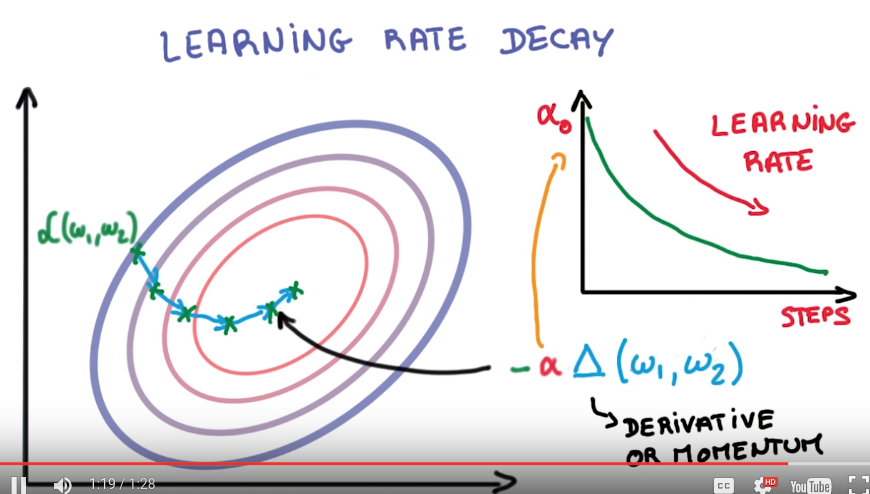 LEARNING RATE DECAY
α₀
LEARNING
RATE
ℒ(ω₁,ω₂)
STEPS
-α Δ(ω₁,ω₂)
DERIVATIVE
OR MOMENTUM
1:19 / 1:28
CC
HD
YouTube